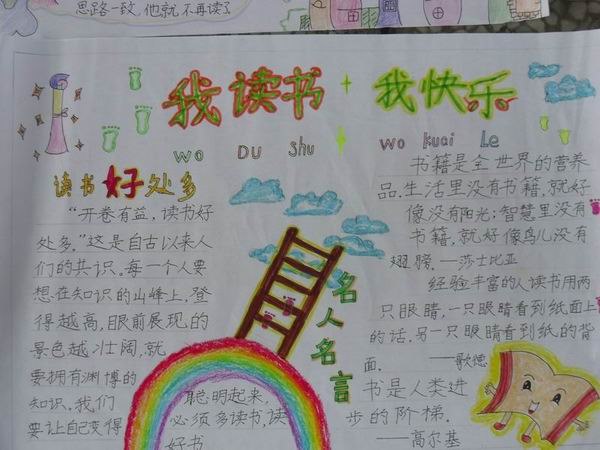 思路一致，他就不再读了
我读书 我快乐
wo Du shu wo kuai Le
读书好处多
"开卷有益，读书好
处多。"这是自古以来人
们的共识。每一个人要
想在知识的山峰上，登
得越高，眼前展现的
景色越壮阔，就
要拥有渊博的
知识。我们
要让自己变得
聪明起来，
必须多读书，读
好书
名人名言
书籍是全世界的营养
品。生活里没有书籍，就好
像没有阳光；智慧里没有
书籍，就好像鸟儿没有
翅膀。—莎士比亚
经验丰富的人读书用两
只眼睛，一只眼睛看到纸面上
的话，另一只眼睛看到纸的背
面。——歌德
书是人类进
步的阶梯.
——高尔基